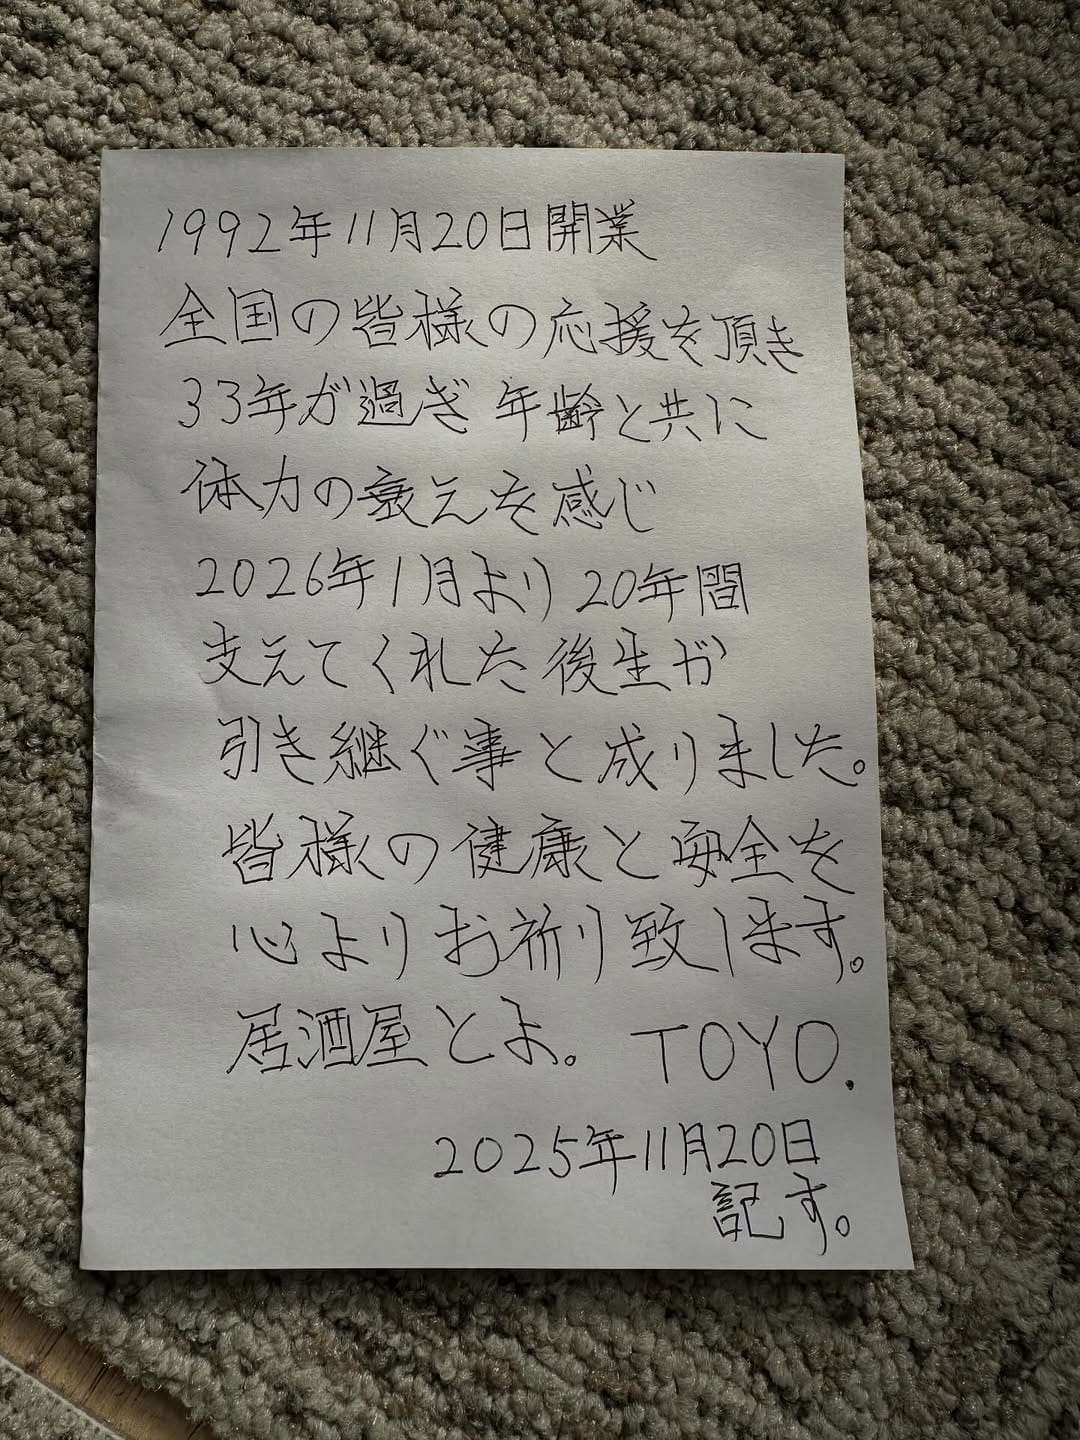 1992年11月20日開業
全国の皆様の応援を頂き
33年が過ぎ 年齢と共に
体力の衰えを感じ
2026年1月より 20年間
支えてくれた後生が
引き継ぐ事と成りました。
皆様の健康と安全を
心よりお祈り致します。
居酒屋とよ。 TOYO.
2025年11月20日
記す。